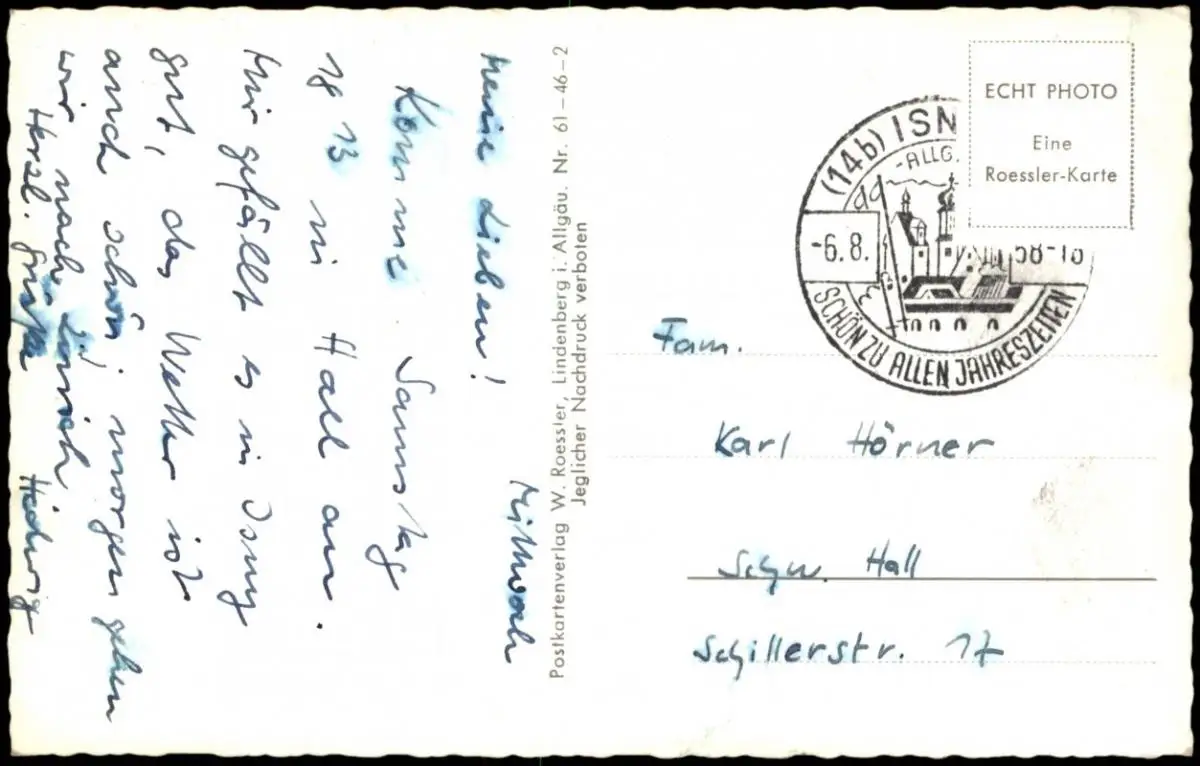 Mittwoch
Meine Lieben!
Komme Samstag
18 13 in Hall an.
Mir gefällt es in Isny
gut, das Wetter ist
auch schön, morgen gehen
wir nach
Herzl. Grüße Hedwig
Postkartenverlag W. Roessler, Lindenberg i. Allgäu. Nr. 61–46–2
Jeglicher Nachdruck verboten
ECHT PHOTO
Eine
Roessler-Karte
(14b) ISN
-ALLG.
-6.8. 58-18
SCHÖN ZU ALLEN JAHRESZEITEN
Fam.
Karl Hörner
Schw. Hall
Schillerstr. 17